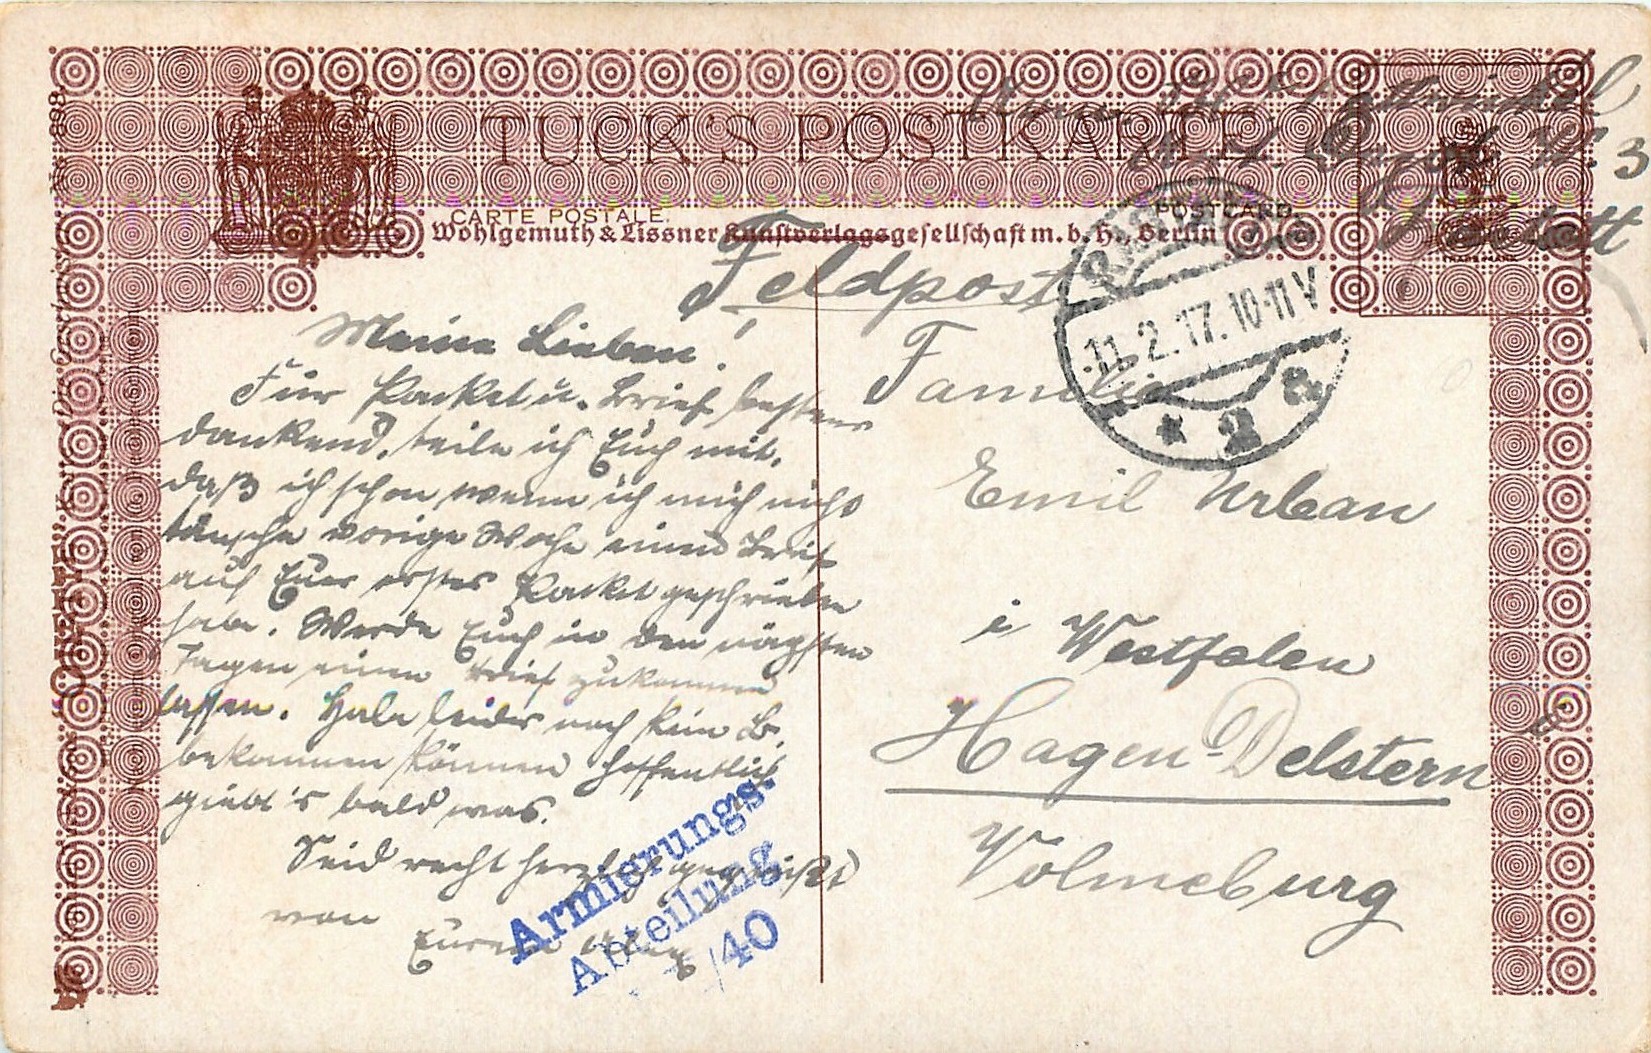 TUCK'S POSTKARTE
CARTE POSTALE.
POSTCARD.
Wohlgemuth & Lissner Kunstverlagsgesellschaft m. b. H., Berlin
Feldpost
11.2.17. 10-11 V
* 2 a
Meine Lieben!
Für Packet u. Brief bestens
dankend, teile ich Euch mit,
daß ich schon wenn ich mich nicht
täusche vorige Woche einen Brief
auf Euer erstes Packet geschrieben
habe. Werde Euch in den nägsten
Tagen einen Brief zukommen
lassen. Habe leider noch kein B.
bekommen können hoffentlich
giebt's bald was.
Seid recht herzlich gegrüßt
von
Eurem
Armierungs-
Abteilung
/40
Familie
Emil Urban
i Westfalen
Hagen-Delstern
Volmeburg